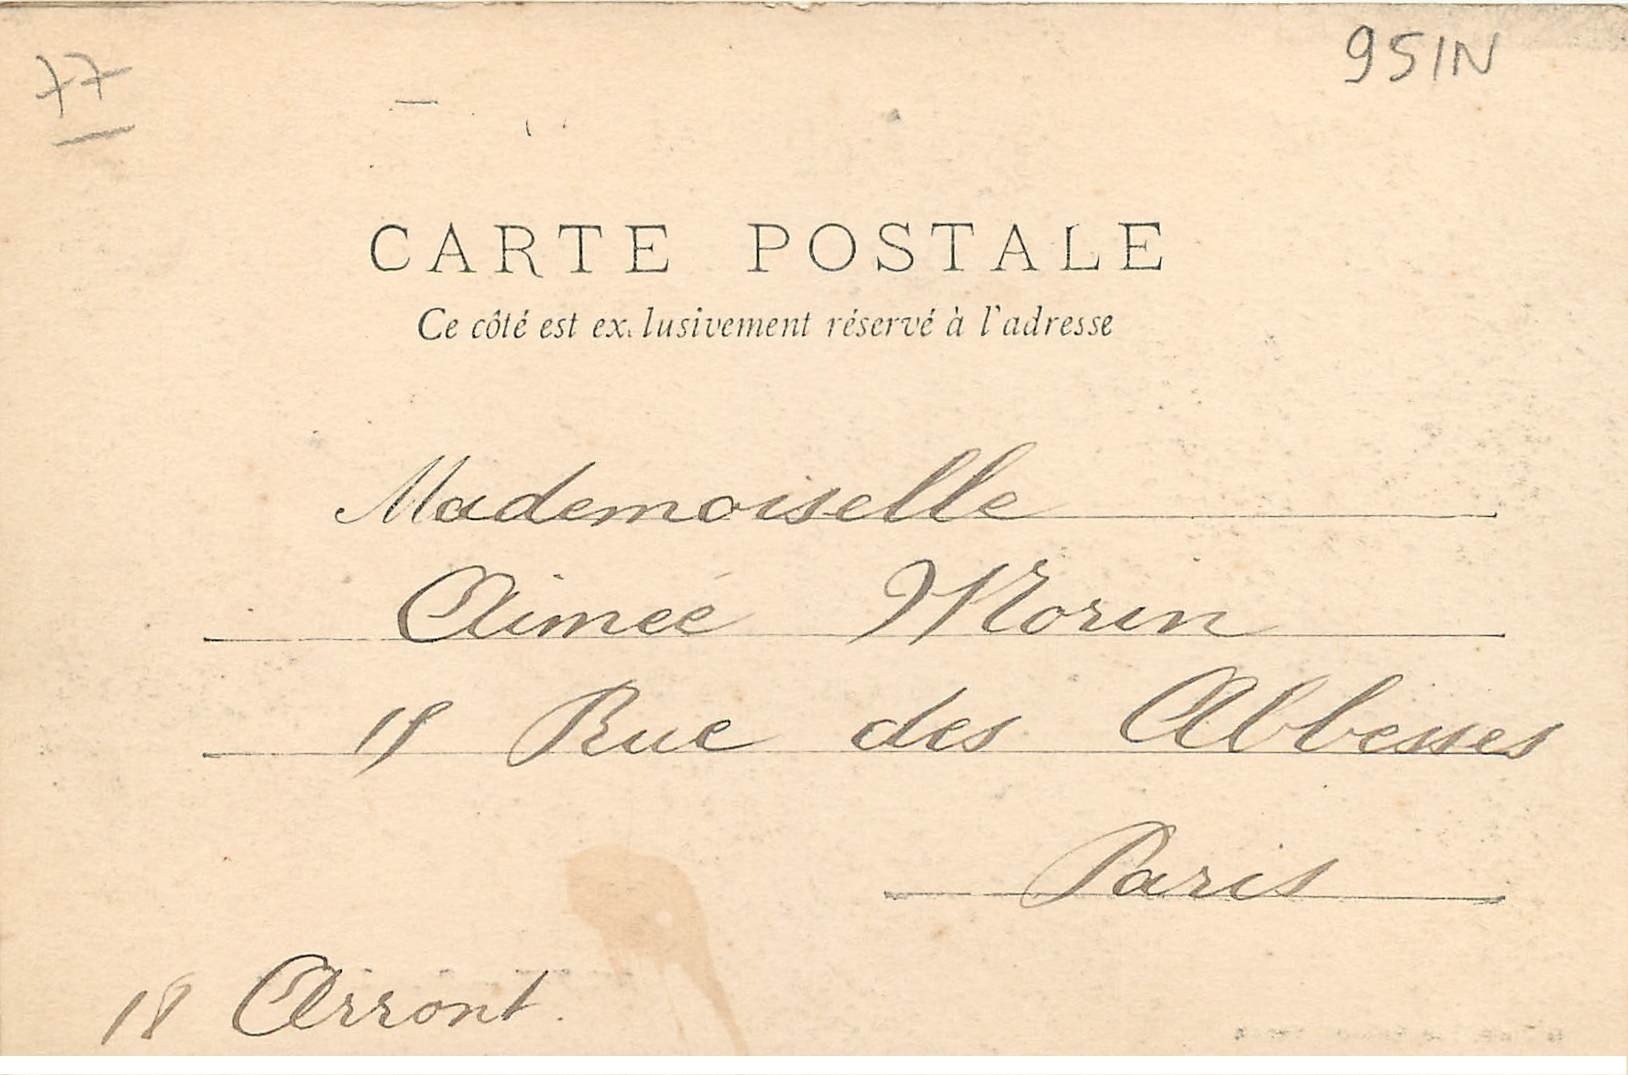 77
95IN
CARTE POSTALE
Ce côté est exclusivement réservé à l'adresse
Mademoiselle
Aimée Morin
Rue des Abbesses
Paris
18 Arront.